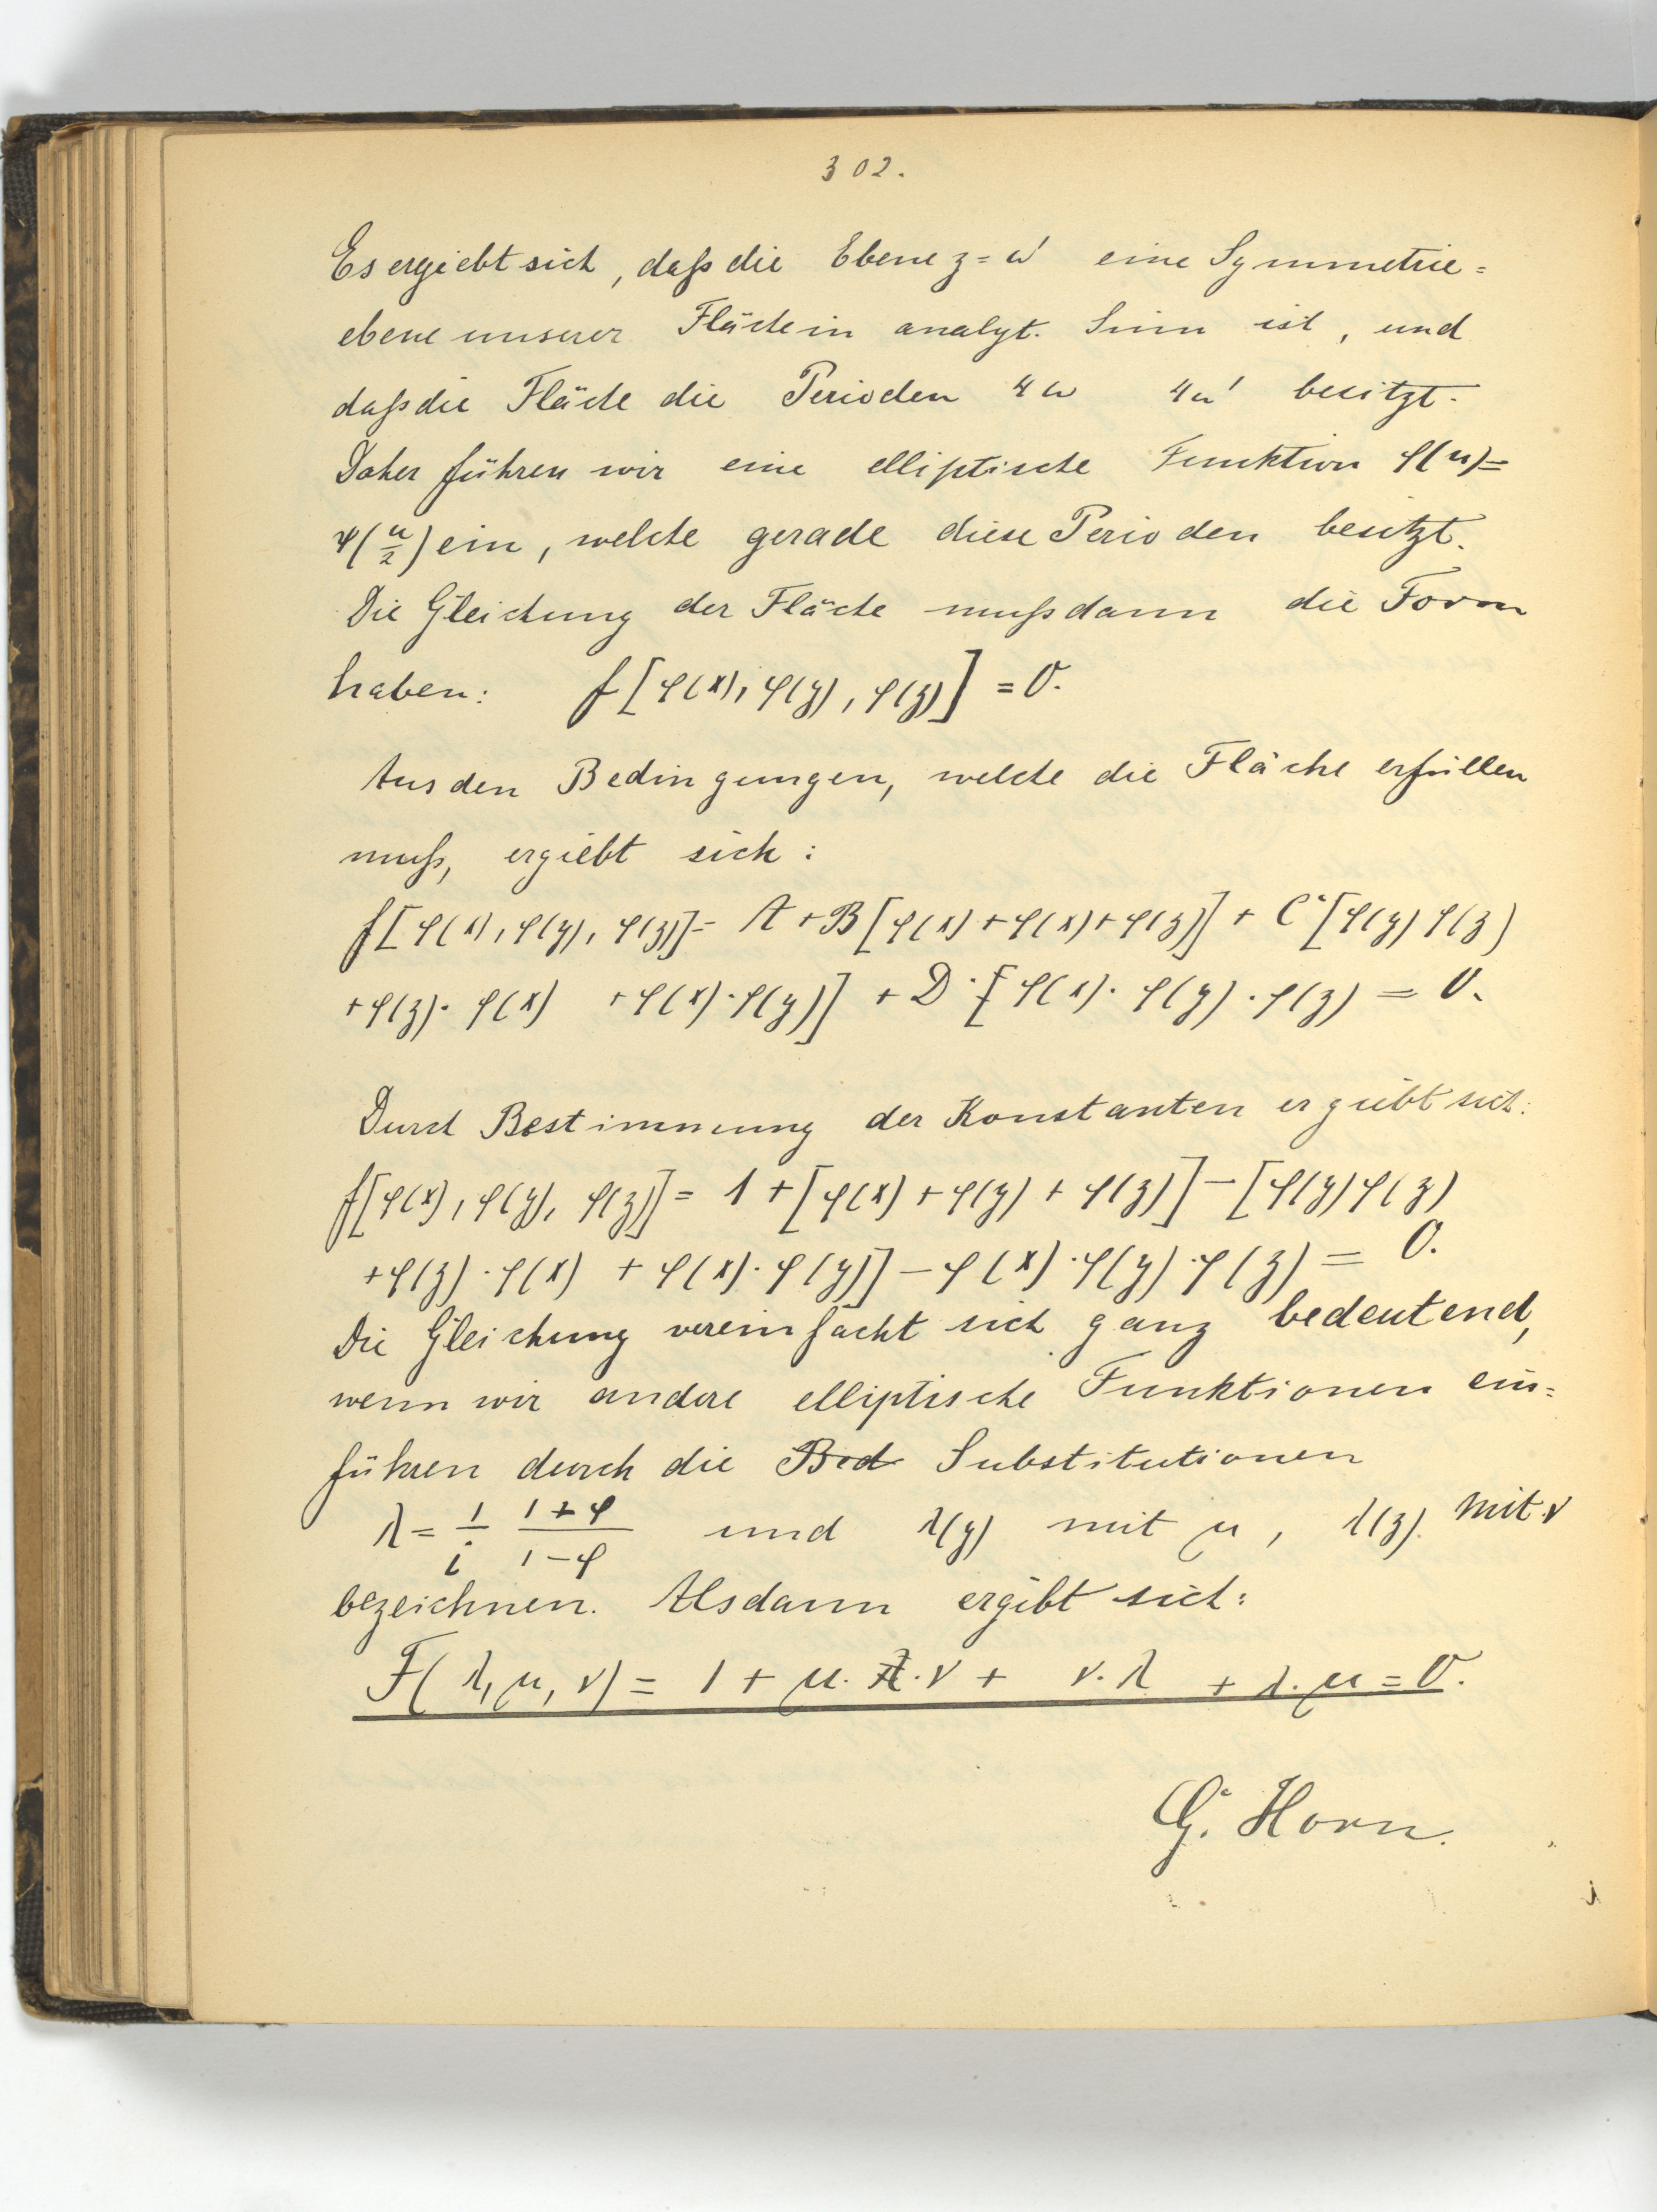 302.
Es ergiebt sich, daß die Ebene z = ω' eine Symmetrie=
ebene unserer Fläche in analyt. Sinn ist, und
daß die Fläche die Perioden 4ω 4ω' besitzt.
Daher führen wir eine elliptische Funktion φ(u)=
ψ(u/2) ein, welche gerade diese Perioden besitzt.
Die Gleichung der Fläche muß dann die Form
haben: f[φ(x), φ(y), φ(z)] = 0.
Aus den Bedingungen, welche die Fläche erfüllen
muß, ergiebt sich:
f[φ(x), φ(y), φ(z)] = A + B[φ(x) + φ(x) + φ(z)] + C·[φ(y) φ(z)
+ φ(z)· φ(x) + φ(x)·φ(y)] + D·[φ(x)· φ(y)·φ(z) = 0.
Durch Bestimmung der Konstanten ergiebt sich:
f[φ(x), φ(y), φ(z)] = 1 + [φ(x) + φ(y) + φ(z)] − [φ(y)φ(z)
+ φ(z)·φ(x) + φ(x)·φ(y)] − φ(x)·φ(y)·φ(z) = 0.
Die Gleichung vereinfacht sich ganz bedeutend,
wenn wir andere elliptische Funktionen ein=
führen durch die Bed Substitutionen
λ = 1/i (1+φ)/(1−φ) und λ(y) mit μ, λ(z) mit ν
bezeichnen. Alsdann ergibt sich:
F(λ, μ, ν) = 1 + μ·λ·ν + ν·λ + λ·μ = 0.
G. Horn.